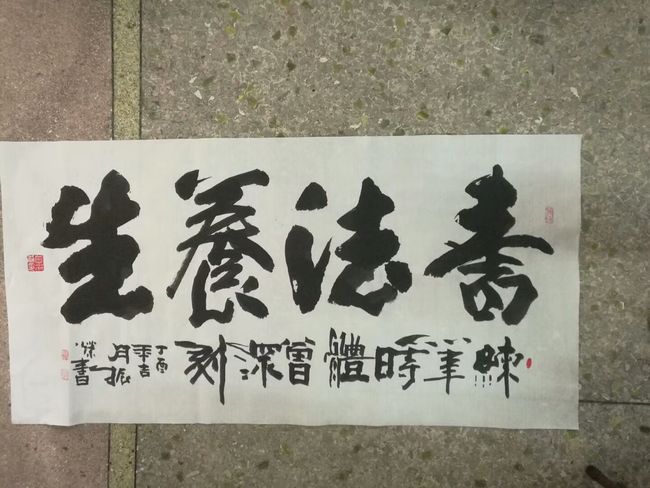 書法養生
練筆時體會深刻
丁酉
年吉
月振
書